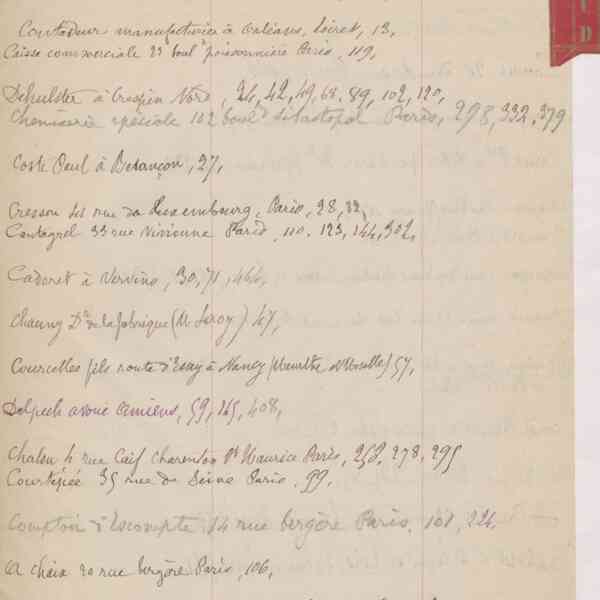 D
manufacture à Orléans, Loiret, 13,
Caisse commerciale 23 boulᵈ poissonnière Paris, 119,
Schulster à Crespin Nord, 24, 42, 49, 68, 89, 102, 120,
Chemiserie spéciale 102 boulᵈ Sébastopol Paris, 298, 332, 379
Coste Paul à Besançon, 27,
Cresson 41 rue du Luxembourg, Paris, 28, 32,
Cantagrel 33 rue Vivienne Paris, 110, 123, 144, 302,
Cadoret à Vervins, 30, 71, 464,
Chauny Dʳ de la fabrique (M Leroy) 47,
Courcelles fils route d'Essey à Nancy (Meurthe et Moselle) 57,
Delpech avoué Amiens, 59, 165, 408,
Chalon 4 rue Charenton Sᵗ Maurice Paris, 258, 278, 295
Courtépée 35 rue de Seine Paris, 99,
Comptoir d'Escompte 14 rue bergère Paris, 101, 224,
A Chaix 20 rue bergère Paris, 106,